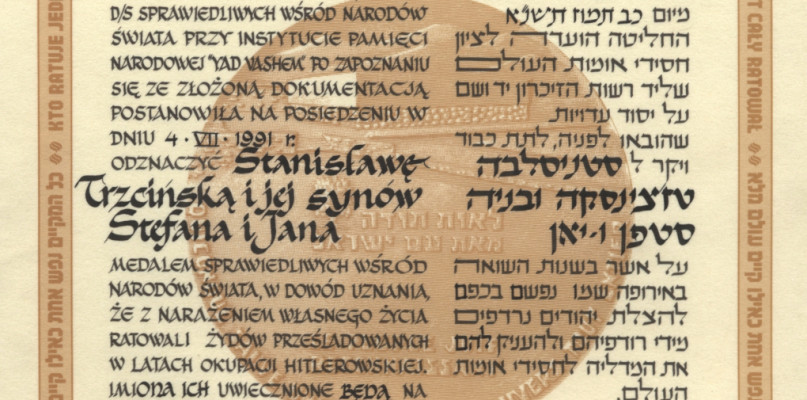 D/S SPRAWIEDLIWYCH WŚRÓD NARODÓW
ŚWIATA PRZY INSTYTUCIE PAMIĘCI
NARODOWEJ "YAD VASHEM" PO ZAPOZNANIU
SIĘ ZE ZŁOŻONĄ DOKUMENTACJĄ
POSTANOWIŁA NA POSIEDZENIU W
DNIU 4 · VII · 1991 r.
ODZNACZYĆ Stanisławę
Trzcińską i jej synów
Stefana i Jana
MEDALEM SPRAWIEDLIWYCH WŚRÓD
NARODÓW ŚWIATA, W DOWÓD UZNANIA,
ŻE Z NARAŻENIEM WŁASNEGO ŻYCIA
RATOWALI ŻYDÓW PRZEŚLADOWANYCH
W LATACH OKUPACJI HITLEROWSKIEJ.
IMIONA ICH UWIECZNIONE BĘDĄ NA
מיום כב תמוז תשנ"א
החליטה הועדה לציון
חסידי אומות העולם
שליד רשות הזיכרון יד ושם
על יסוד עדויות
שהובאו לפניה, לתת כבוד
ויקר ל סטניסלבה
טז'צינסקה ובניה
סטפן ו-יאן
על אשר בשנות השואה
באירופה שמו נפשם בכפם
להצלת יהודים נרדפים
מידי רודפיהם ולהעניק להם
את המדליה לחסידי אומות
העולם.
KTO RATUJE JED
כל המקיים נפש אחת כאילו קיי
T CAŁY RATOWAŁ
נפש אחת כאילו קיים עולם מלא
לאות תודה
מאת עם ישראל